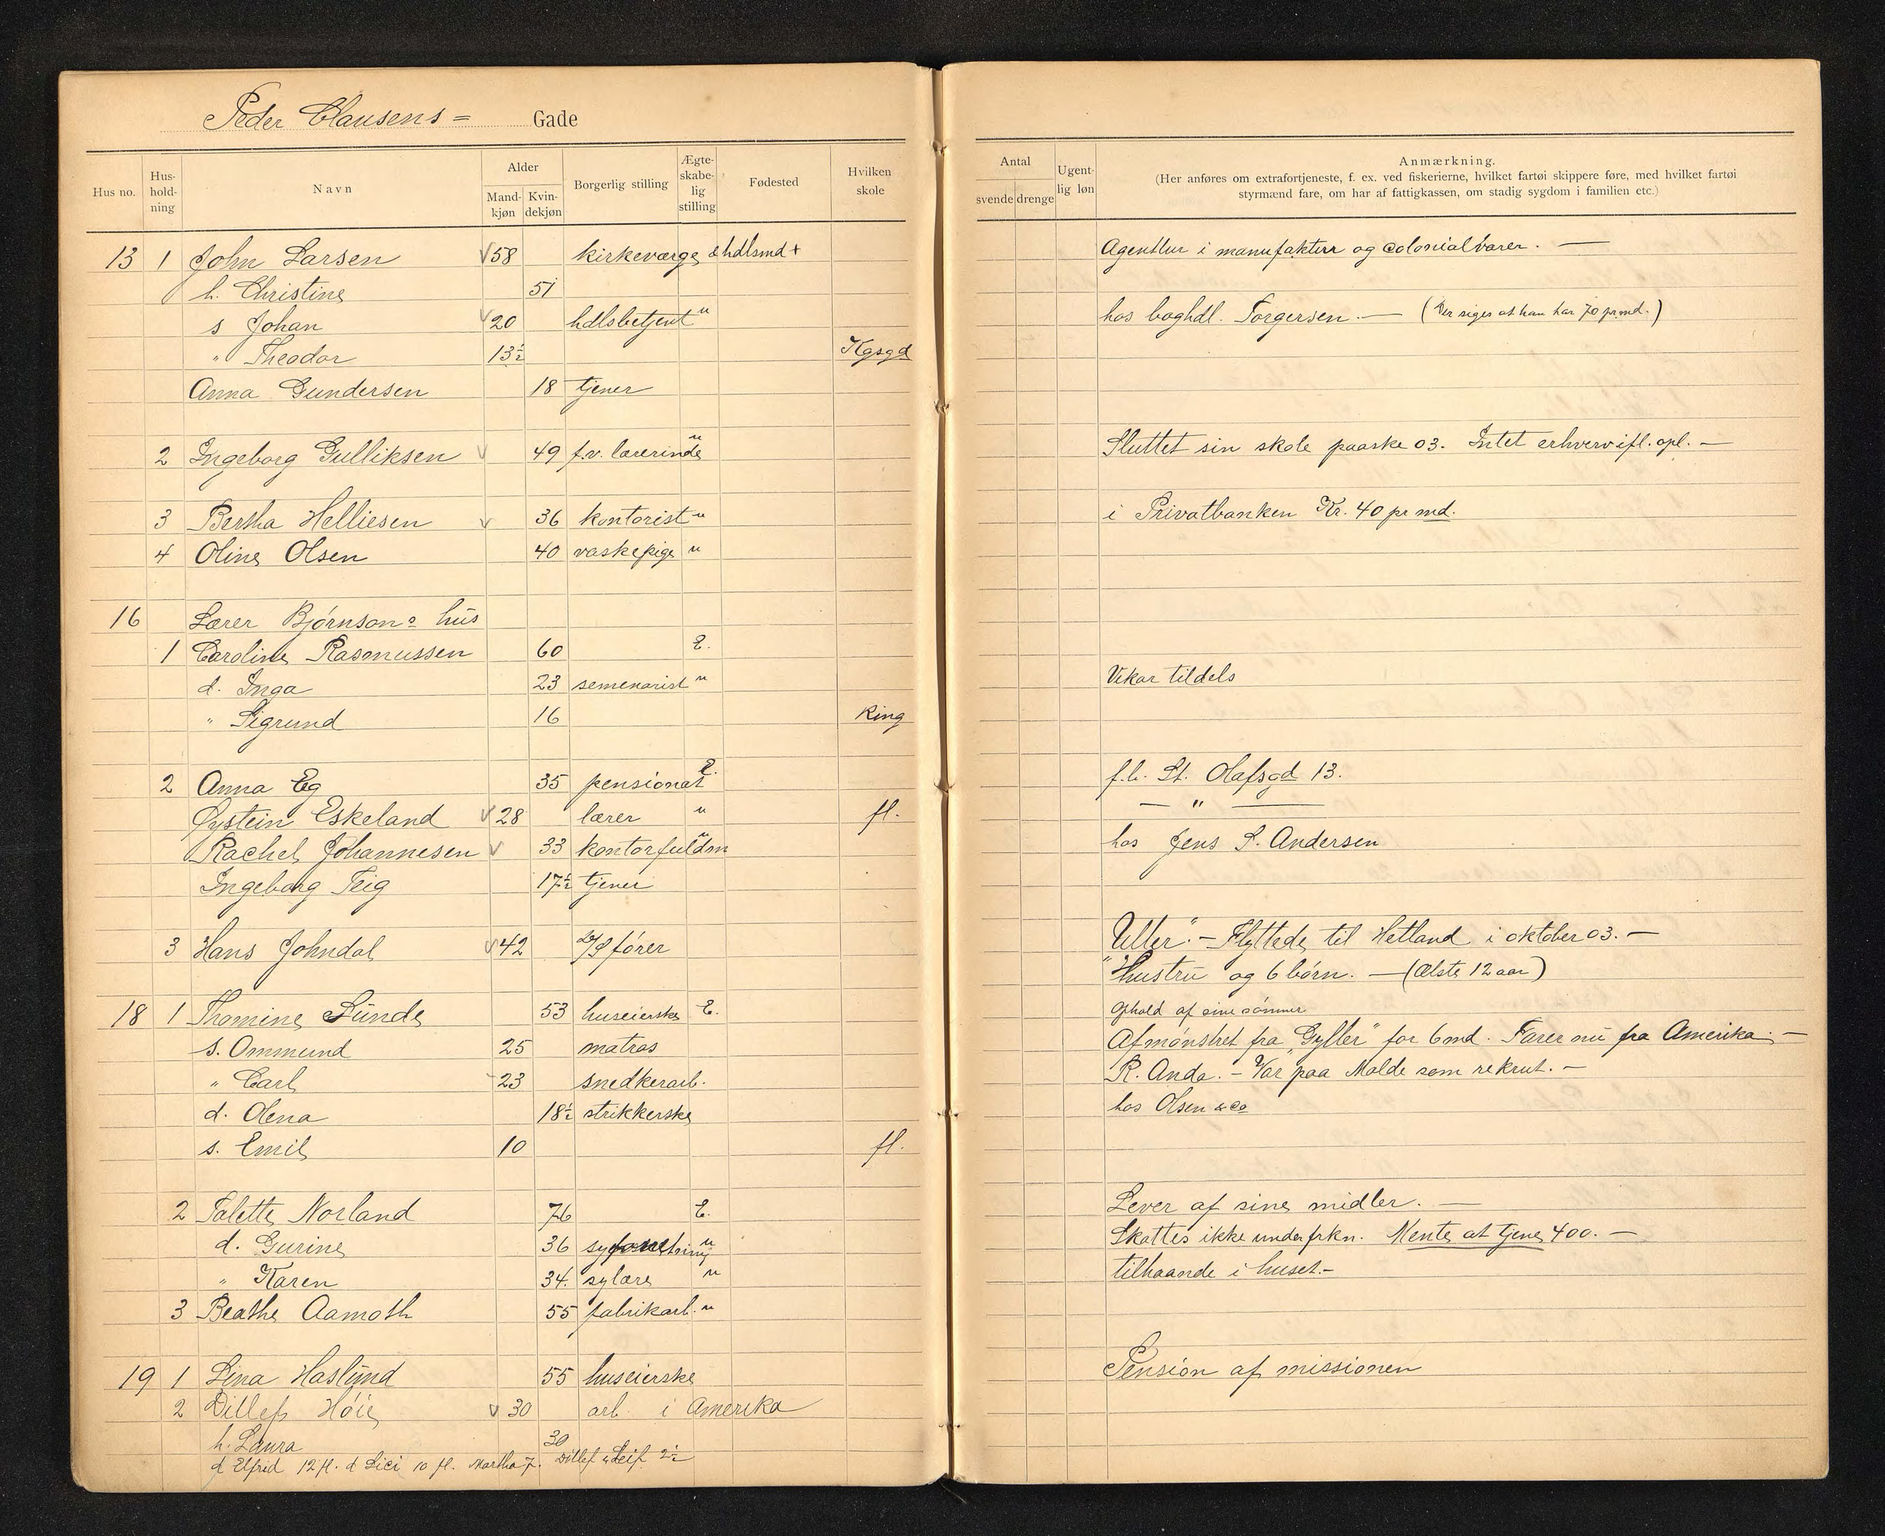 Peder Clausens = Gade
Hus no. Hus-hold-ning Navn Alder Mand-kjøn Kvin-dekjøn Borgerlig stilling Ægte-skabe-lig stilling Fødested Hvilken skole
Antal svende drenge Ugent-lig løn Anmærkning.
(Her anføres om extrafortjeneste, f. ex. ved fiskerierne, hvilket fartøi skippere føre, med hvilket fartøi
styrmænd fare, om har af fattigkassen, om stadig sygdom i familien etc.)
13 1 John Larsen 58 kirkeværge & hdlsmd + Agentur i manufaktur og colonialvarer. —
h. Christine 51
s Johan 20 hdlsbetjent u hos boghdl. Torgersen. — (Der siges at han har 70 pr md.)
" Theodor 13½ Kgsgd
Anna Gundersen 18 tjener
2 Ingeborg Gulliksen 49 f.v. lærerinde u Sluttet sin skole paaske 03. Intet erhverv ifl. opl. —
3 Bertha Helliesen 36 kontorist u i Privatbanken Kr. 40 pr md.
4 Oline Olsen 40 vaskepige u
16 Lærer Bjørnsons hus
1 Caroline Rasmussen 60 E.
d. Inga 23 semenarist u Vikar tildels
" Sigrund 16 King
2 Anna Eg 35 pensionat E. f.b. St. Olafsgd 13.
Øystein Eskeland 28 lærer u fl. — " —
Rachel Johannesen 33 kontorfuldm u hos Jens S. Andersen
Ingeborg Teig 17½ tjener
3 Hans Johndal 42 D/S fører "Uller". — Flyttede til Hetland i oktober 03. —
Hustru og 6 børn. — (Ælste 12 aar)
18 1 Thomine Sunde 53 huseierske E. Ophold af sine sønner
s. Ommund 25 matros Afmønstret fra "Gyller" for 6 md. Farer nu fra Amerika. —
" Carl 23 snedkerarb. R. Anda. — Var paa Molde som rekrut. —
d. Olena 18½ strikkerske hos Olsen & Co
s. Emil 10 fl.
2 Talette Norland 76 E. Lever af sine midler. —
d. Gurine 36 u Skattes ikke under frkn. Mente at tjene 400. —
" Karen 34. sylære u tilhaande i huset. —
3 Beathe Aamoth 55 fabrikarb. u
19 1 Lina Haslund 55 huseierske Pension af missionen
2 Ditlef Høie 30 arb. i Amerika
h. Laura 30
d Elfrid 12 fl. d Lici 10 fl. Martha 7. Ditlef & Leif 2½